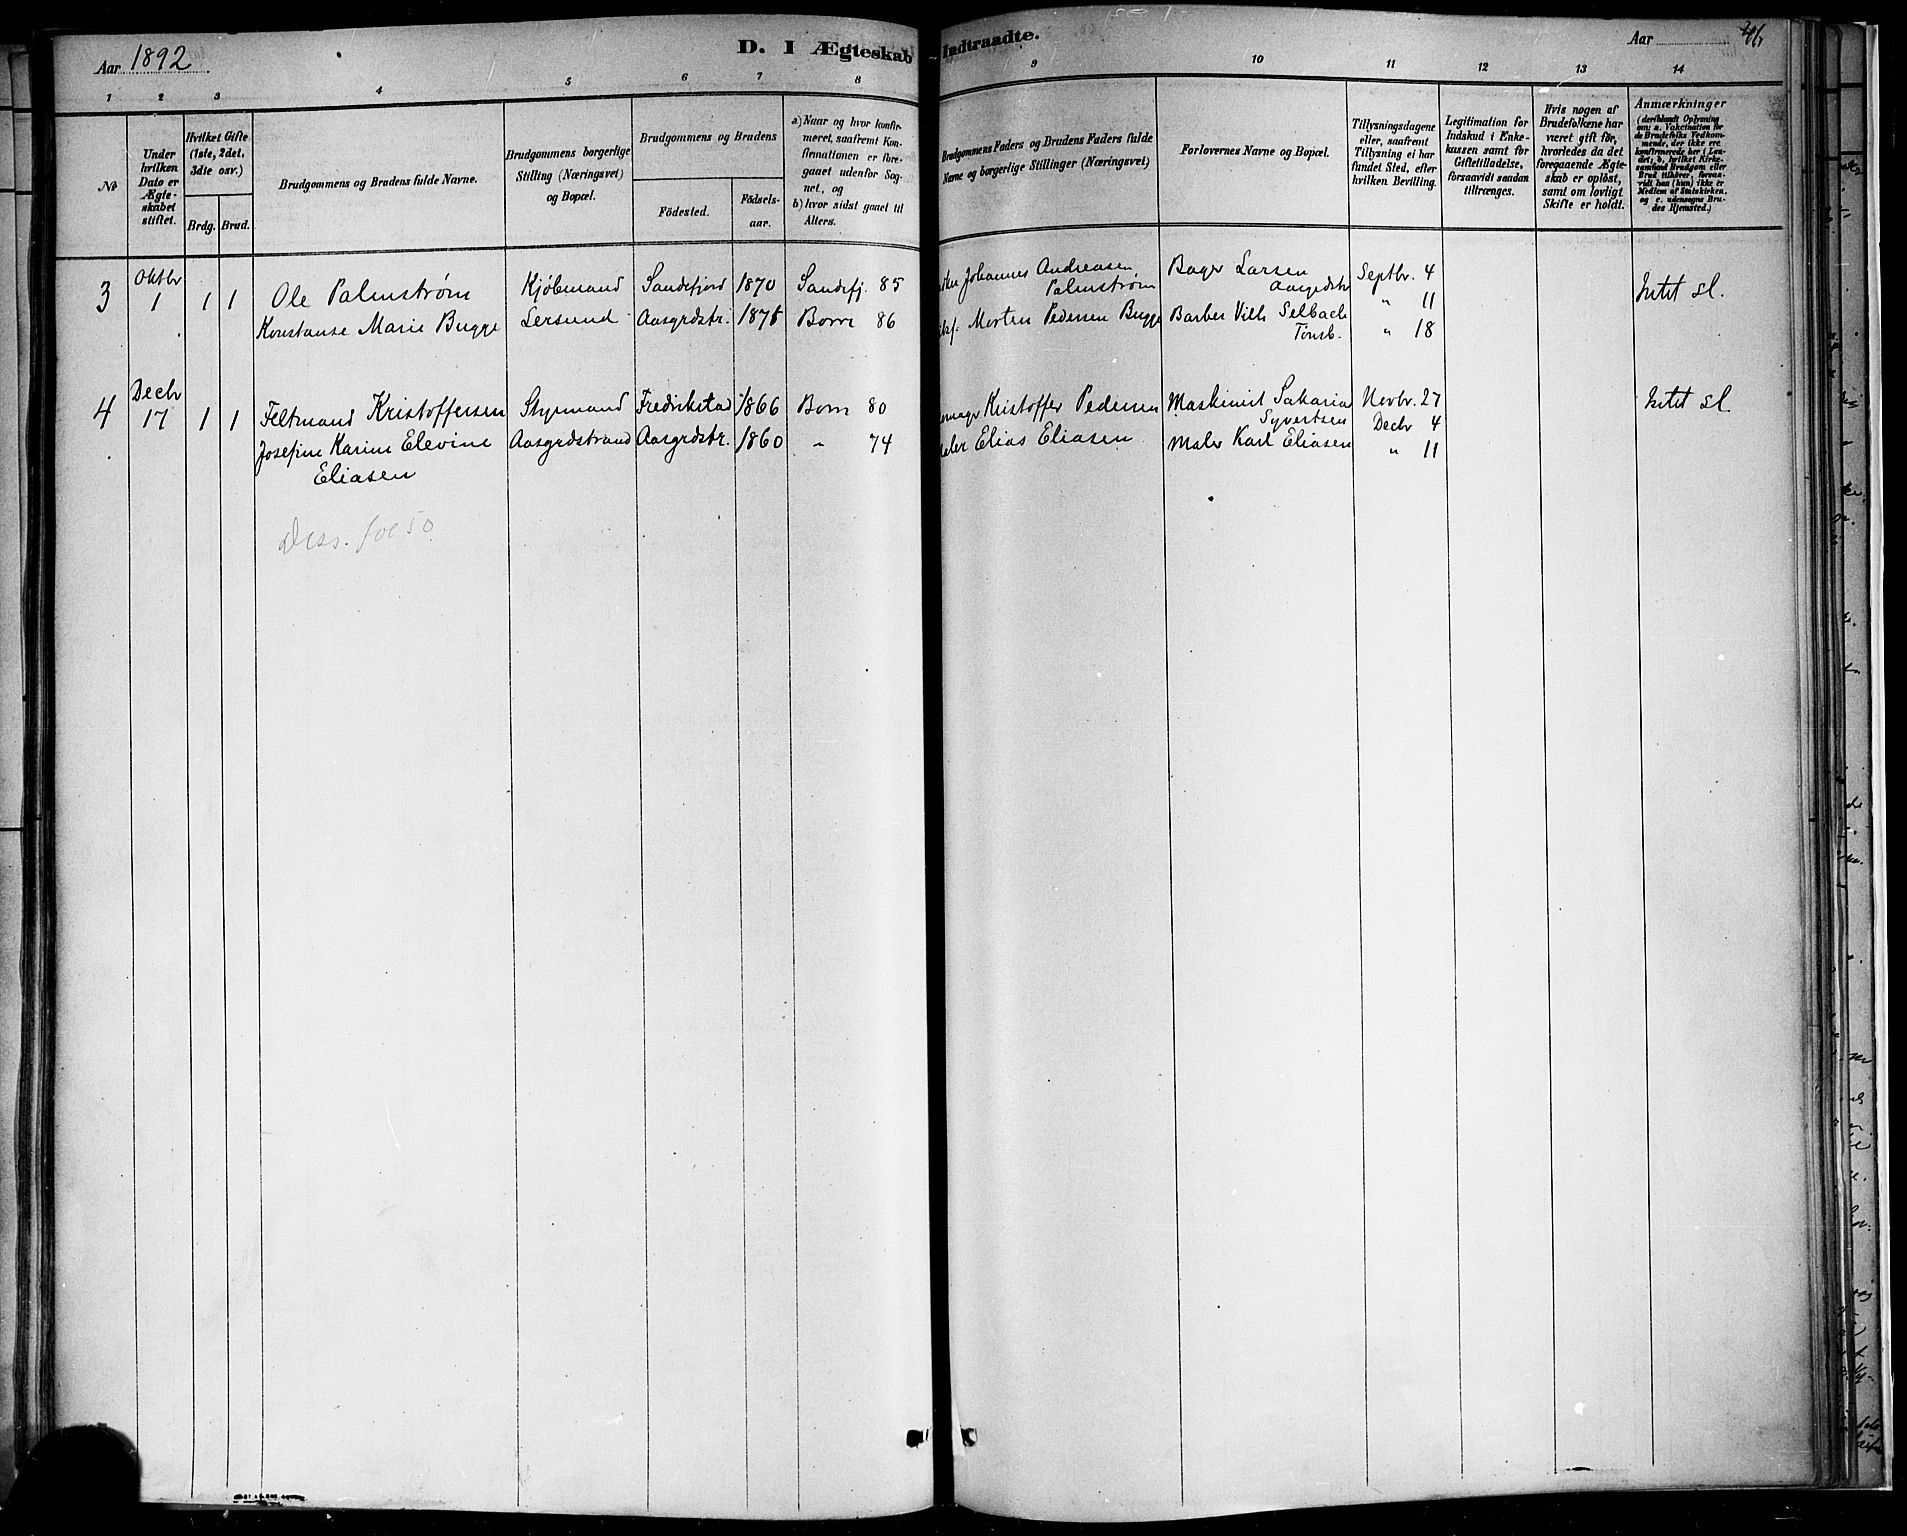 Aar 1892
D. I Ægteskab Indtraadte.
Aar
1 2 3 4 5 6 7 8 9 10 11 12 13 14
No
Under hvilken Dato er Ægte-skabet stiftet.
Hvilket Gifte (1ste, 2det, 3die osv.)
Brdg. Brud.
Brudgommens og Brudens fulde Navne.
Brudgommens borgerlige Stilling (Næringsvei) og Bopæl.
Brudgommens og Brudens
Födested.
Födsels-aar.
a) Naar og hvor konfir-meret, saafremt Kon-firmationen er fore-gaaet udenfor Sog-net, og
b) hvor sidst gaaet til Alters.
Brudgommens Faders og Brudens Faders fulde Navne og borgerlige Stillinger (Næringsvei)
Forlovernes Navne og Bopæl.
Tillysningsdagene eller, saafremt Tillysning ei har fundet Sted, efter hvilken Bevilling.
Legitimation for Indskud i Enke-kassen samt for Giftetilladelse, forsaavidt saadan tiltrænges.
Hvis nogen af Brudefolkene har været gift för, hvorledes da det foregaaende Ægte-skab er oplöst, samt om lovligt Skifte er holdt.
Anmærkninger (deriblandt Oplysning om: a. Vakcination for de Brudefolks Vedkom-mende, der ikke ere konfirmerede her i Lan-det; b. hvilket Kirke-samfund Brudgom eller Brud tilhörer, forsaa-vidt han (hun) ikke er Medlem af Statskirken, og c. udensogns Bru-des Hjemsted.)
3 Oktbr 1 1 1 Ole Palmstrøm Kjöbmand Sandefjord 1870 Sandefj. 85 Johannes Andreasen Palmstrøm Bager Larsen Aasgrdstr Septbr. 4 Intet sl.
" 11
Konstanse Marie Bugge Lersund Aasgrdstr. Borre 86 Morten Pedersen Bugge Barber Vilh Selbach Tönsb. " 18
4 Decbr 17 1 1 Feltmand Kristoffersen Styrmand Fredrikstad 1866 Borre 80 Kristoffer Pedersen Maskinist Sakarias Syvertsen Novbr. 27 Intet sl.
Decbr 4
Josefine Karine Elevine Eliasen Aasgrdstrand Aasgrdstr. 1860 " 74 Elias Eliasen Maler Karl Eliasen " 11
Diss. fol 50